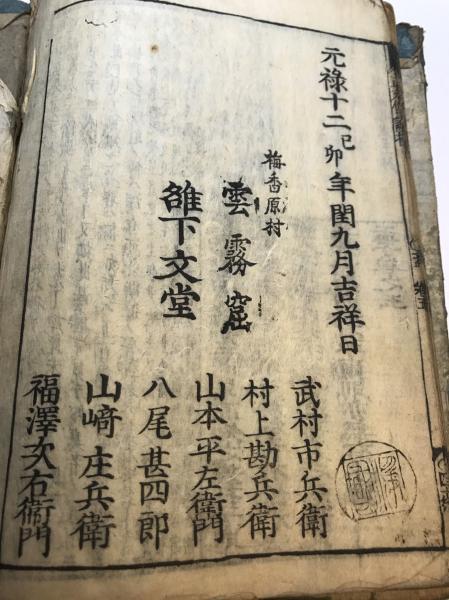 元禄十二己卯年閏九月吉祥日
梅香原村
雲霧窟
雒下文堂
武村市兵衛
村上勘兵衛
山本平左衛門
八尾甚四郎
山﨑庄兵衛
福澤次右衛門